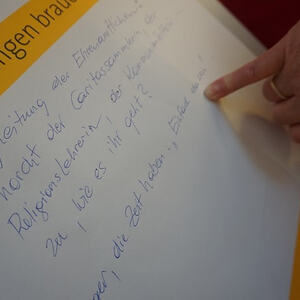 ngen brau
leitung der Ehrenamtlichen
horcht der Caritassammlerin, der
Religionslehrerin, der Kommunionmutter
zu, wie es ihr geht?
die Zeit haben", Einfach da sein!